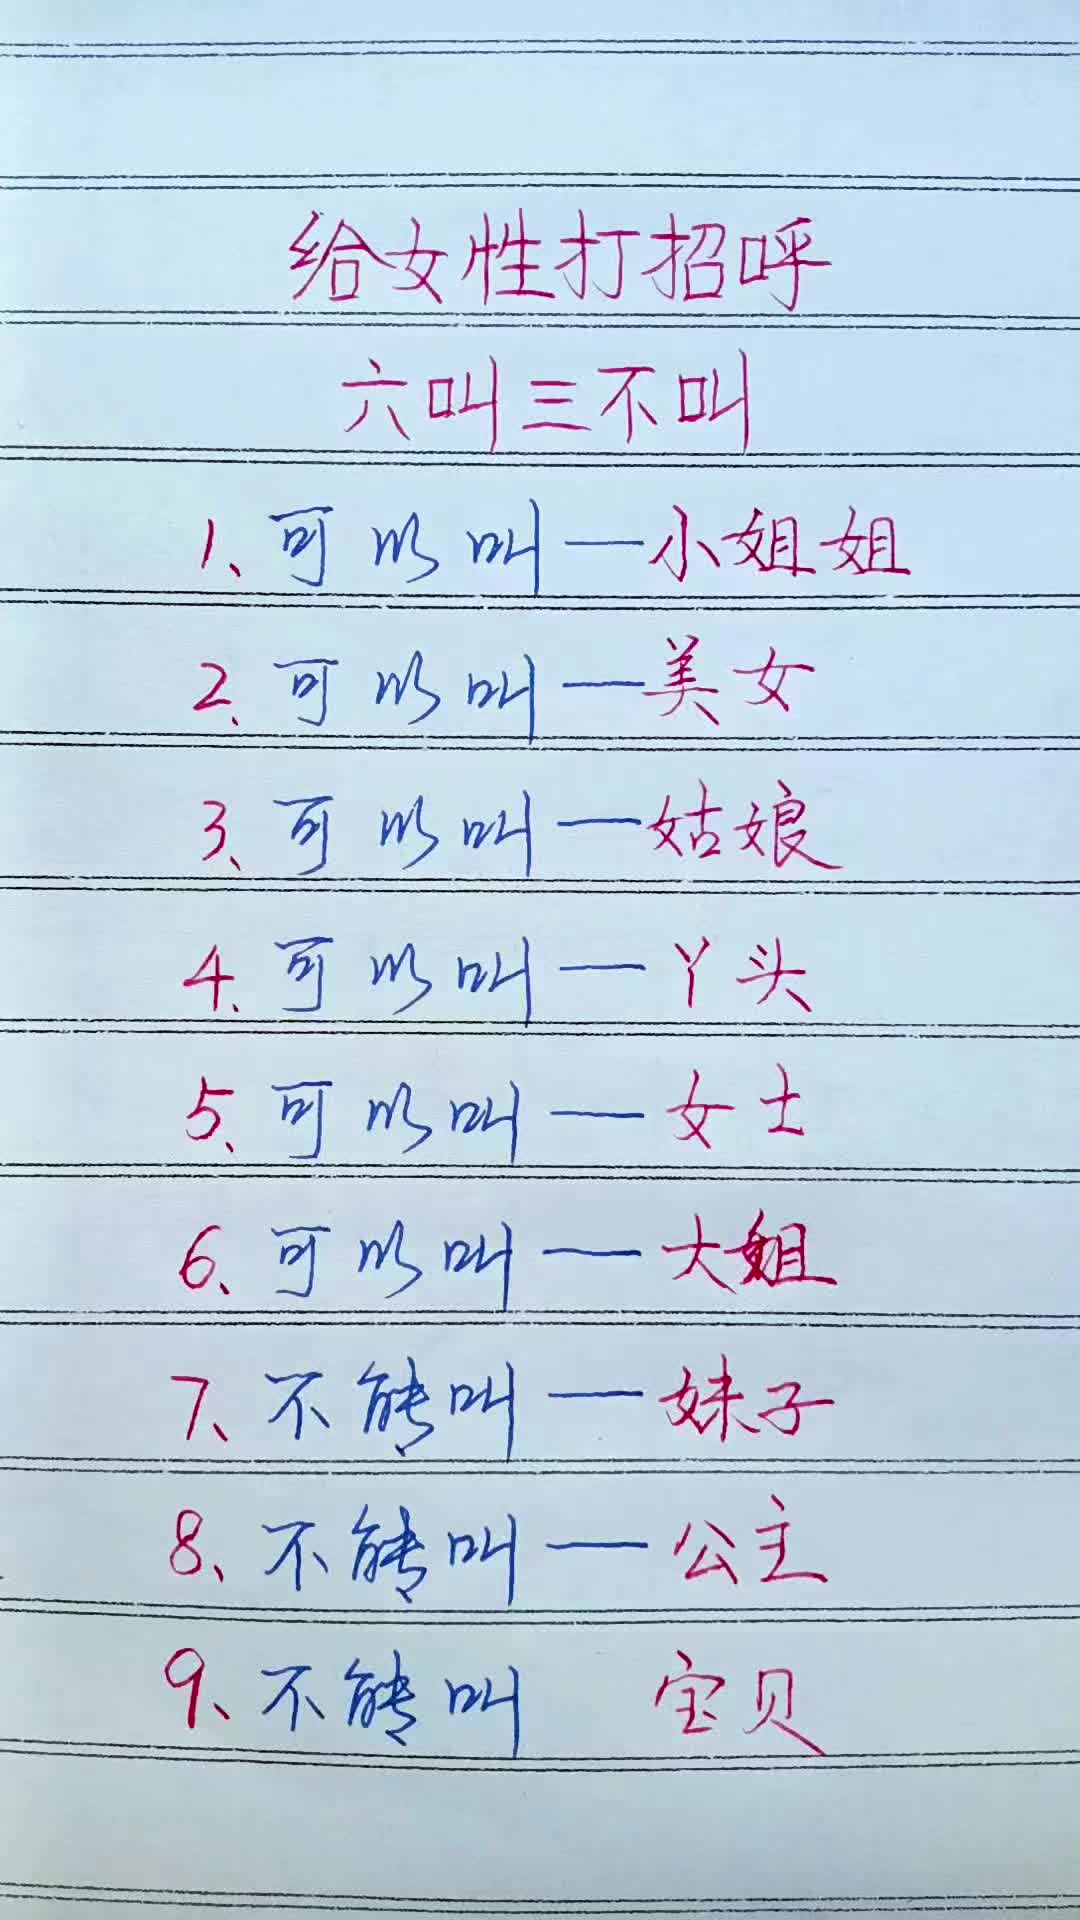 给女性打招呼
六叫三不叫
1、可以叫——小姐姐
2、可以叫——美女
3、可以叫——姑娘
4、可以叫——丫头
5、可以叫——女士
6、可以叫——大姐
7、不能叫——妹子
8、不能叫——公主
9、不能叫 宝贝